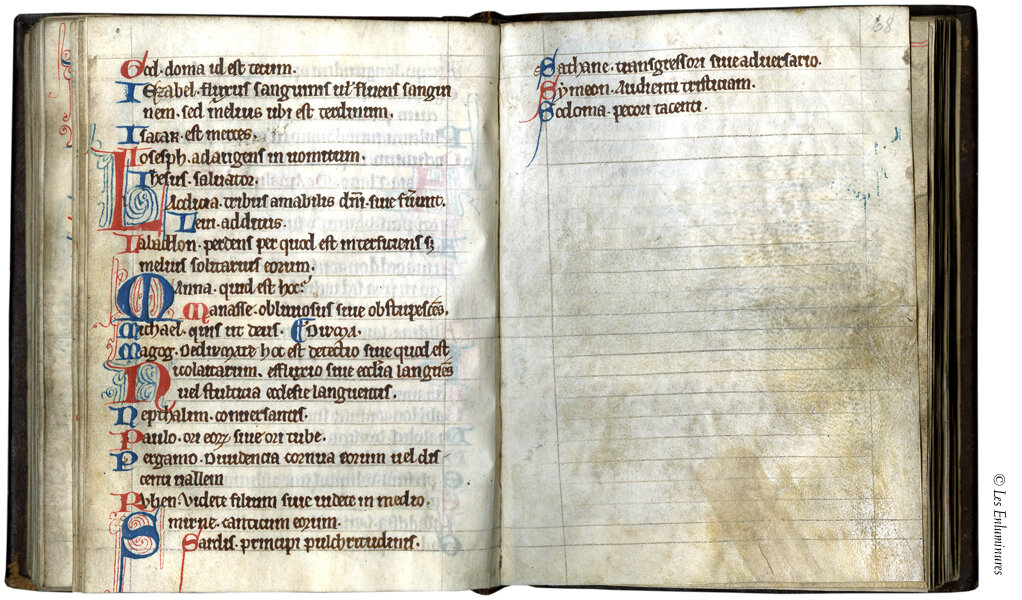 Gol. doma vl est tectum.
Iezabel. fluxus sanguinis ul' fluens sangui
nem. sed melius ubi est
Isacar. est merces.
Ioseph. ad augens in
Ihesus. saluator.
tribus amabilis dn̄i. siue
Leui. additus.
Labaddon. perdens per quod est interficiens s;
melius solitarius eorum.
Manna. quid est hoc?
Manasse. obliuiosus siue
Michael. quis ut deus.
Magog. hoc est detectio siue quod est
Nicolaitarum. effluxio siue eccl'ia
uel stulticia ecclesie languentis.
Nepthalim. conuersantis.
Paulo. ori eorꝝ siue ori tube.
Pergamo. Diuidencia cornua eorum uel dis
centi uallem
Ruben. Videte filium siue uidete in medio.
Smirne. canticum eorum.
Sardis. principi pulchritudinis.
68
Sathane. transgressori siue aduersario.
Symeon. Audienti tristiciam.
Sodoma. pecori tacenti.
© Les Enluminures